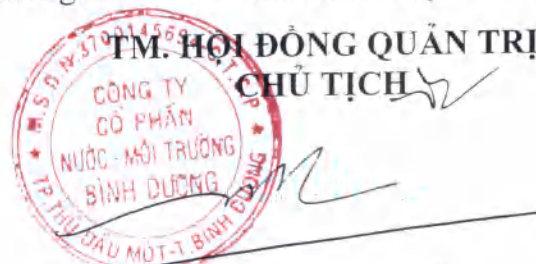 TM. HỘI ĐỒNG QUẢN TRỊ
CHỦ TỊCH
CÔNG TY
CỔ PHẦN
NƯỚC - MÔI TRƯỜNG
BÌNH DƯƠNG
TP.THỦ DẦU MỘT-T.BÌNH DƯƠNG